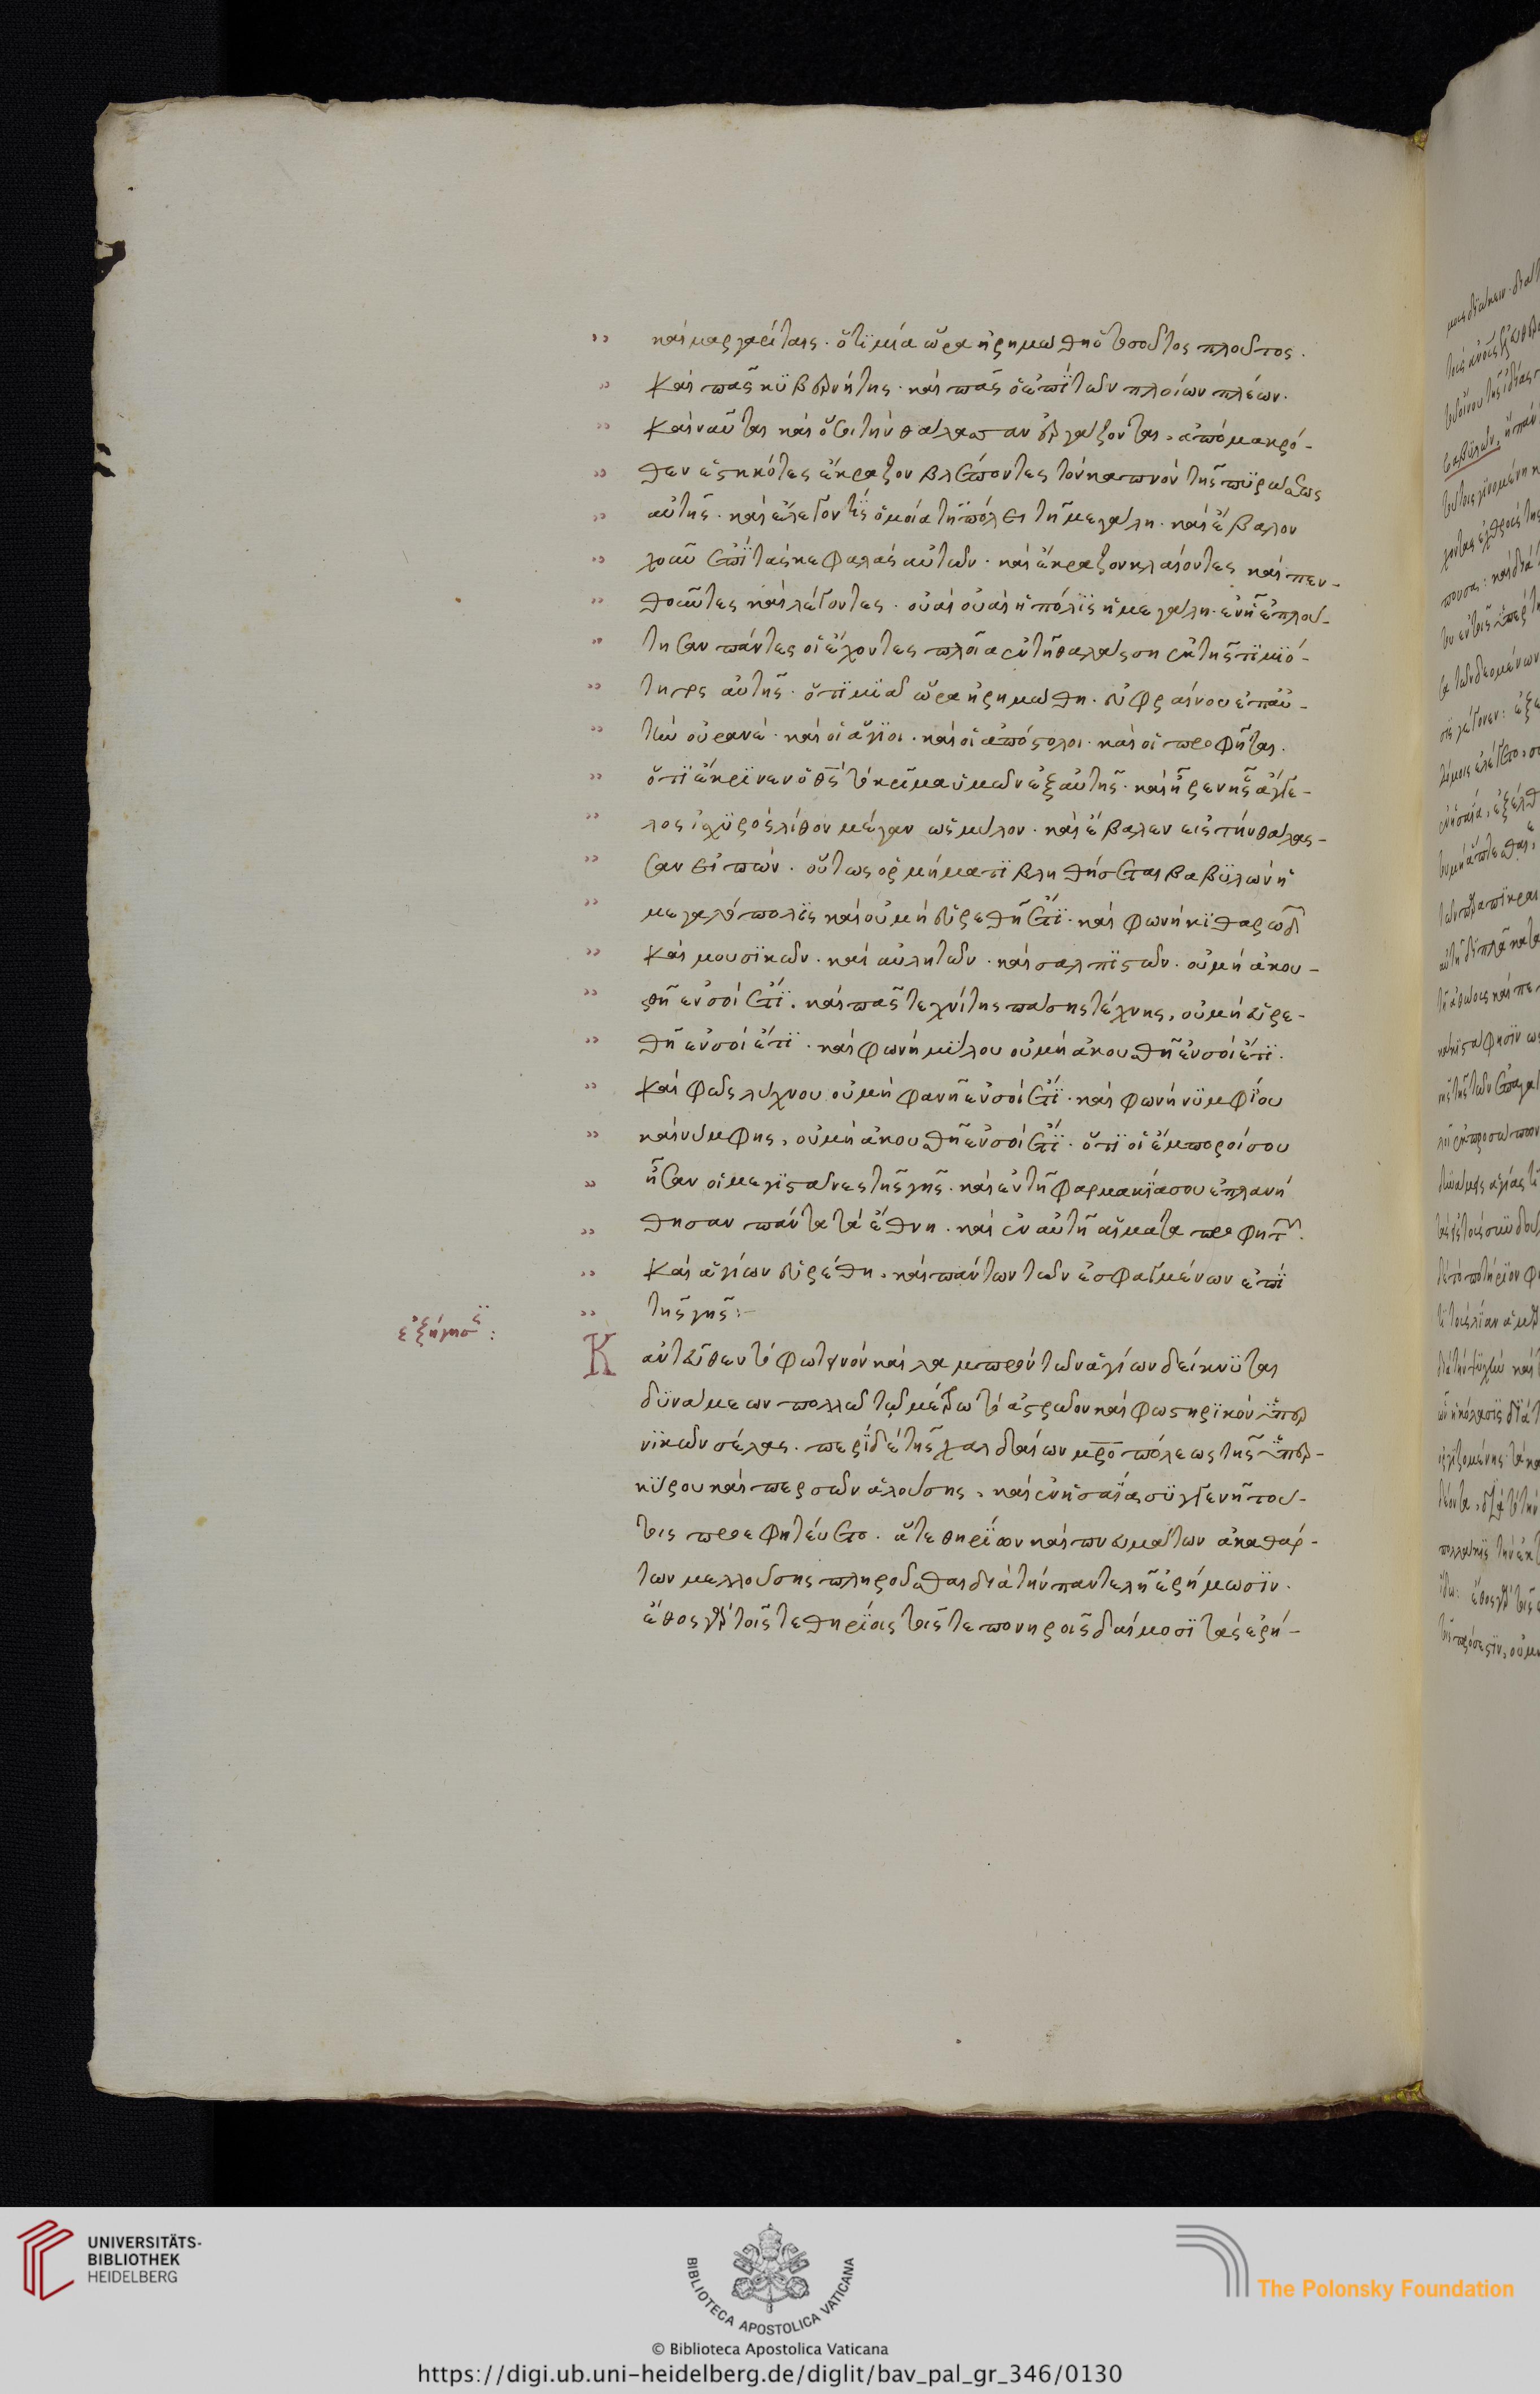 καὶ μαργαρίταις. ὅτι μιᾷ ὥρα ἠρημώθη ὁ τοσοῦτος πλοῦτος.
Καὶ πᾶς κυβερνήτης. καὶ πᾶς ὁ ἐπὶ τῶν πλοίων πλέων.
Καὶ ναῦται καὶ ὅσοι τὴν θάλασσαν ἐργάζονται, ἀπὸ μακρό-
θεν ἑστηκότες ἔκραζον βλέποντες τὸν καπνὸν τῆς πυρώσεως
αὐτῆς. καὶ ἔλεγον τίς ὁμοία τῇ πόλει τῇ μεγάλη. καὶ ἔβαλον
χοῦν ἐπὶ τὰς κεφαλὰς αὐτῶν. καὶ ἔκραζον κλαίοντες καὶ πεν-
θοῦντες καὶ λέγοντες. οὐαὶ οὐαὶ ἡ πόλις ἡ μεγάλη. ἐν ᾗ ἐπλού-
τησαν πάντες οἱ ἔχοντες πλοῖα ἐν τῇ θαλάσση ἐκ τῆς τιμιό-
τητος αὐτῆς. ὅτι μιᾷ ὥρα ἠρημώθη. εὐφραίνου ἐπ' αὐ-
τὴν οὐρανέ. καὶ οἱ ἅγιοι. καὶ οἱ ἀπόστολοι. καὶ οἱ προφῆται.
ὅτι ἔκρινεν ὁ θς τὸ κρῖμα ὑμῶν ἐξ αὐτῆς. καὶ ἦρεν εἷς ἄγγε-
λος ἰσχυρὸς λίθον μέγαν ὡς μύλον. καὶ ἔβαλεν εἰς τὴν θάλασ-
σαν εἰπών. οὕτως ὁρμήματι βληθήσεται βαβυλὼν ἡ
μεγάλη πόλις καὶ οὐ μὴ εὑρεθῆ ἔτι. καὶ φωνὴ κιθαρῳδ
Καὶ μουσικῶν. καὶ αὐλητῶν. καὶ σαλπιστῶν. οὐ μὴ ἀκου-
σθῇ ἐν σοὶ ἔτι. καὶ πᾶς τεχνίτης πάσης τέχνης, οὐ μὴ εὑρε-
θῇ ἐν σοὶ ἔτι. καὶ φωνὴ μύλου οὐ μὴ ἀκουσθῇ ἐν σοὶ ἔτι.
Καὶ φῶς λύχνου οὐ μὴ φανῇ ἐν σοὶ ἔτι. καὶ φωνὴ νυμφίου
καὶ νύμφης, οὐ μὴ ἀκουσθῇ ἐν σοὶ ἔτι. ὅτι οἱ ἔμποροί σου
ἦσαν οἱ μεγιστᾶνες τῆς γῆς. καὶ ἐν τῇ φαρμακία σου ἐπλανή
θησαν πάντα τὰ ἔθνη. καὶ ἐν αὐτῇ αἵματα προφητῶν.
Καὶ ἁγίων εὑρέθη. καὶ πάντων τῶν ἐσφαγμένων ἐπὶ
τῆς γῆς:-
ἐξήγησς:
Κ ἀντεῦθεν τὸ φωτεινὸν καὶ λαμπρὸν τῶν ἁγίων δείκνυται
δυνάμεων πολλῶ τῷ μέτρῳ τὸ ἀστρῶον καὶ φωστηρικὸν ὑπερ
νικῶν σέλας. περὶ δὲ τῆς χαλδαίων μρο πόλεως τῆς ὑπὸ-
κύρου καὶ περσῶν ἁλούσης, καὶ ἐν ἡσαΐα συγγενῆ τού-
τοις προεφητεύετο. ἅτε θηρίων καὶ πνευμάτων ἀκαθάρ-
των μελλούσης πληροῦσθαι διὰ τὴν παντελῆ ἐρήμωσιν.
ἔθος γὰρ τοῖς τε θηρίοις τοῖς τε πονηροῖς δαίμοσι τὰς ἐρή-
UNIVERSITÄTS-
BIBLIOTHEK
HEIDELBERG
BIBLIOTECA APOSTOLICA VATICANA
© Biblioteca Apostolica Vaticana
The Polonsky Foundation
https://digi.ub.uni-heidelberg.de/diglit/bav_pal_gr_346/0130